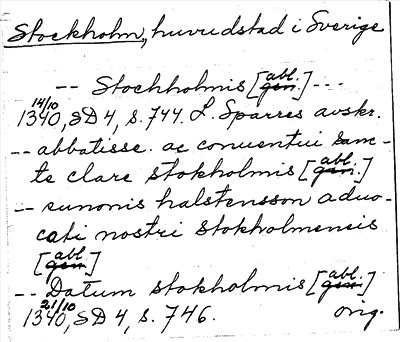 Stockholm, huvudstad i Sverige
-- Stochholmis [abl. gen.] ---
14/10
1340, SD 4, s. 744. L. Sparres avskr.
-- abbatisse. ac conuentui sanc-
te clare stokholmis [abl. gen.]
-- sunonis halstensson aduo-
cati nostri stokholmensis
[abl. gen.]
-- Datum stokholmis [abl. gen.]
21/10
1340, SD 4, s. 746. orig.